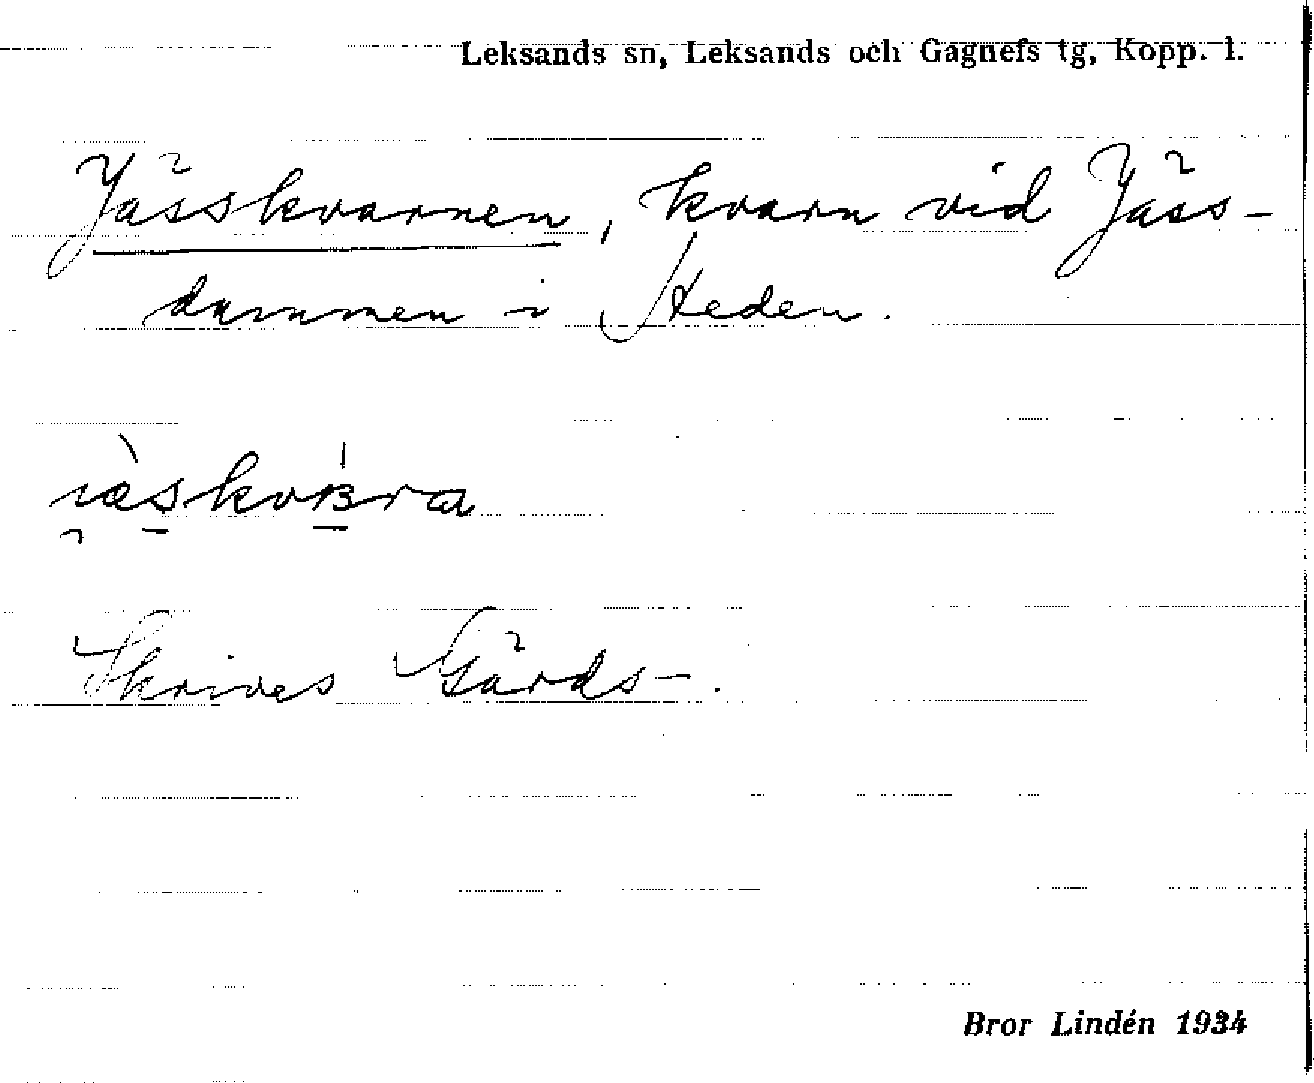 Leksands sn, Leksands och Gagnefs tg, Kopp. l.
Jässkvarnen, kvarn vid Jäss-
dammen i Heden.
Skrives Gärds-.
Bror Lindén 1934